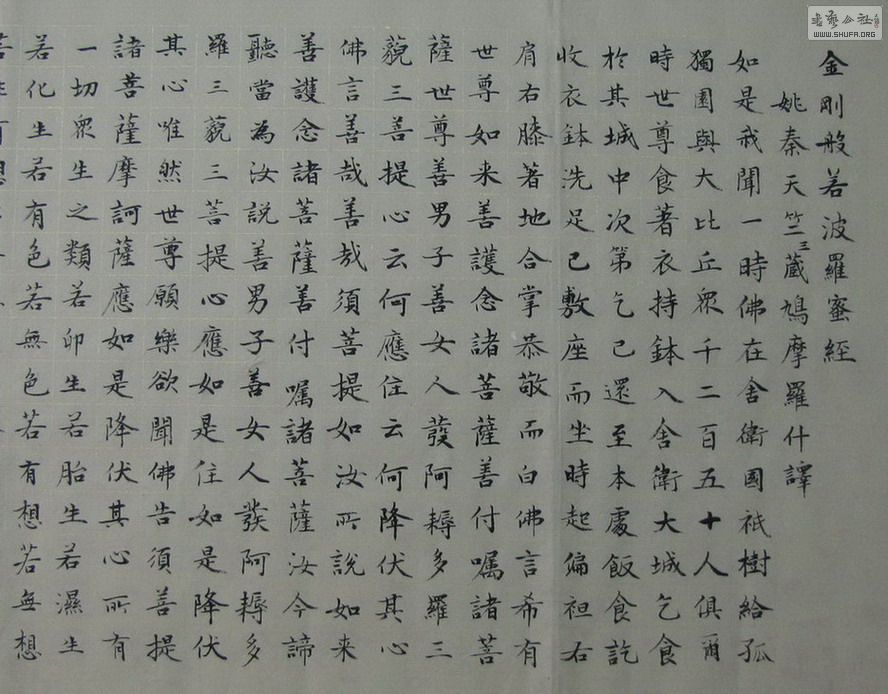 金剛般若波羅蜜經
姚秦天竺三藏鳩摩羅什譯
如是我聞一時佛在舍衛國祇樹給孤
獨園與大比丘眾千二百五十人俱爾
時世尊食著衣持鉢入舍衛大城乞食
於其城中次第乞已還至本處飯食訖
收衣鉢洗足已敷座而坐時起偏袒右
肩右膝著地合掌恭敬而白佛言希有
世尊如来善護念諸菩薩善付囑諸菩
薩世尊善男子善女人發阿耨多羅三
藐三善提心云何應住云何降伏其心
佛言善哉善哉須菩提如汝所說如来
善護念諸菩薩善付囑諸菩薩汝今諦
聽當為汝說善男子善女人發阿耨多
羅三藐三菩提心應如是住如是降伏
其心唯然世尊願樂欲聞佛告須善提
諸菩薩摩訶薩應如是降伏其心所有
一切眾生之類若卵生若胎生若濕生
若化生若有色若無色若有想若無想
書藝公社
WWW.SHUFA.ORG